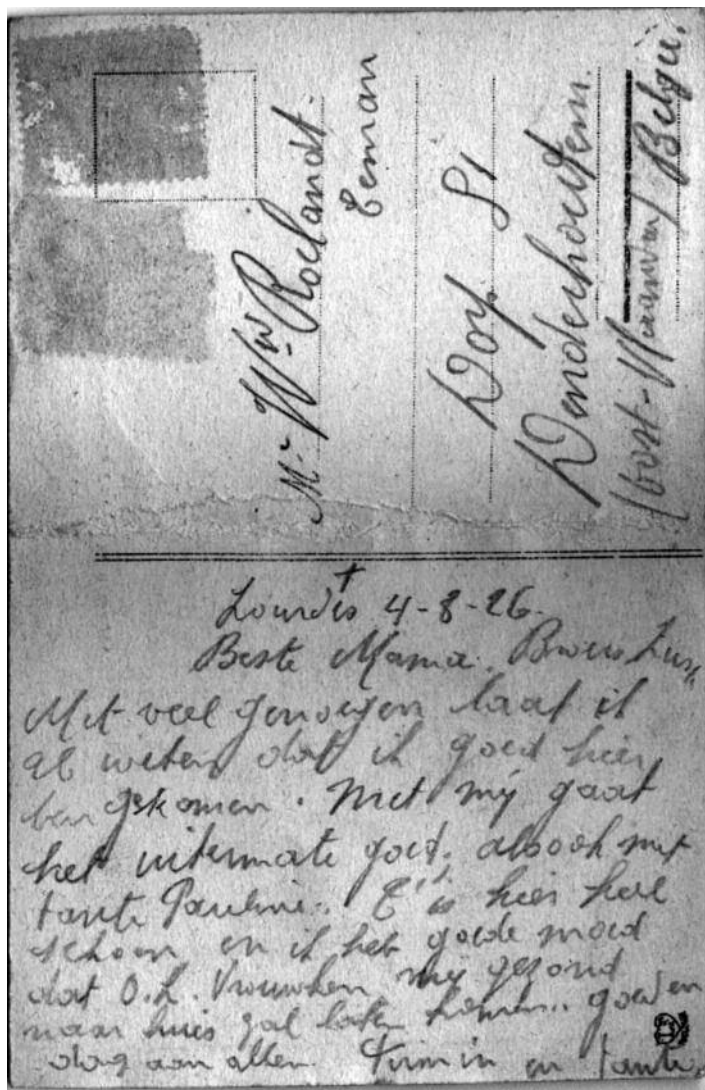 Mr Ww Roelandt.
Eeman
Dorp 81
Denderhoutem.
(Oost-Vlaanderen) Belgie.
Lourdes 4-8-26.
Beste Mama. Broers Zust
Met veel genoegen laat ik
al weten dat ik goed hier
ben gekomen. Met mij gaat
het uitermate goed. alsook met
tante Pauline. Et is hier heel
schoon en ik heb goede moed
dat O.L. Vrouwken mij gezond
naar huis zal laten komen.. goeden
dag aan allen. Firmin en tante.